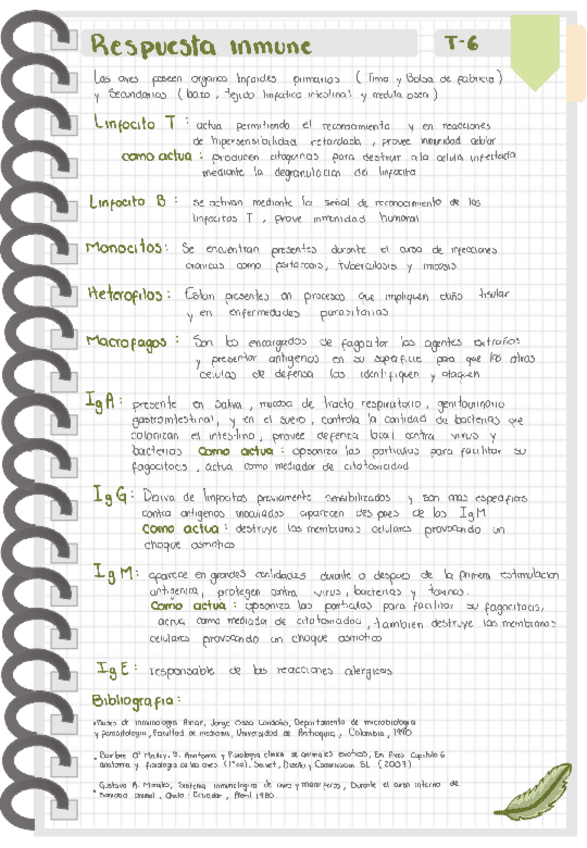 Respuesta inmune
T-6
Las aves poseen organos linfoides primarios ( Timo y Bolsa de fabricio )
y Secundarios ( bazo , tejido linfatico intestinal y medula osea )
Linfocito T : actua permitiendo el reconocimiento y en reacciones
de hipersensibilidad retardada , provee inmunidad celular
como actua : producen citoquinas para destruir a la celula infectada
mediante la degranulacion del linfocito
Linfocito B : se activan mediante la señal de reconocimiento de los
linfocitos T , provee inmunidad humoral
Monocitos: Se encuentran presentes durante el curso de infecciones
cronicas como psitacosis, tuberculosis y micosis
Heterofilos : Estan presentes en procesos que impliquen daño tisular
y en enfermedades parasitarias
Macrofagos : Son los encargados de fagocitar los agentes extraños
y presentar antigenos en su superficie para que las otras
celulas de defensa los identifiquen y ataquen
IgA : presente en Saliva , mucosa de tracto respiratorio , genitourinario
gastrointestinal, y en el suero , controla la cantidad de bacterias que
colonizan el intestino , provee defensa local contra virus y
bacterias Como actua : opsoniza las particulas para facilitar su
fagocitosis , actua como mediador de citotoxicidad
IgG : Deriva de linfocitos previamente sensibilizados y son mas especificos
contra antigenos inoculados aparecen despues de los IgM
Como actua : destruye las membranas celulares provocando un
choque osmotico
IgM : aparece en grandes cantidades durante o despues de la primera estimulacion
antigenica, protegen contra virus , bacterias y toxinas.
Como actua : opsoniza las particulas para facilitar su fagocitosis,
actua como mediador de citotoxicidad , tambien destruye las membranas
celulares provocando un choque osmotico
IgE : responsable de las reacciones alergicas
Bibliografia :
•Bases de inmunologia Aviar, Jorge Ossa Londoño, Departamento de microbiologia
y parasitologia , Facultad de medicina, Universidad de Antioquia , Colombia , 1990
• O' Malley, B. Anatomia y Fisiologia clinica de animales exoticos, En Aves Capitulo 6
anatomia y fisiologia de las aves (1ª ed). Servet , Diseño y Comunicacion SL (2007)
Gustavo A. Morales, Sistema inmunologico de aves y mamiferos , Durante el curso interno de
Sanidad animal , Quito - Ecuador , Abril 1980